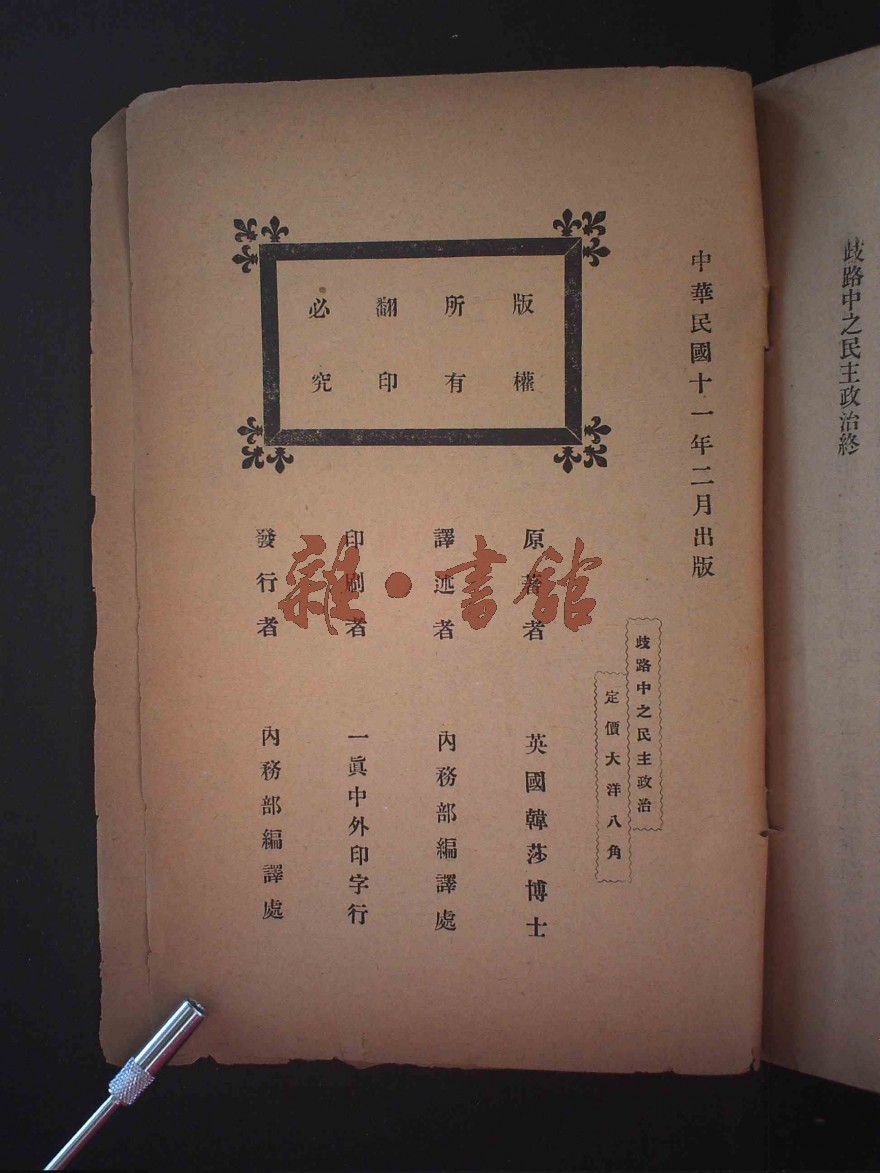 歧路中之民主政治終
中華民國十一年二月出版
歧路中之民主政治
定價大洋八角
版權
所有
翻印
必究
原著者 英國韓莎博士
譯述者 內務部編譯處
印刷者 一眞中外印字行
發行者 內務部編譯處
雜·書館